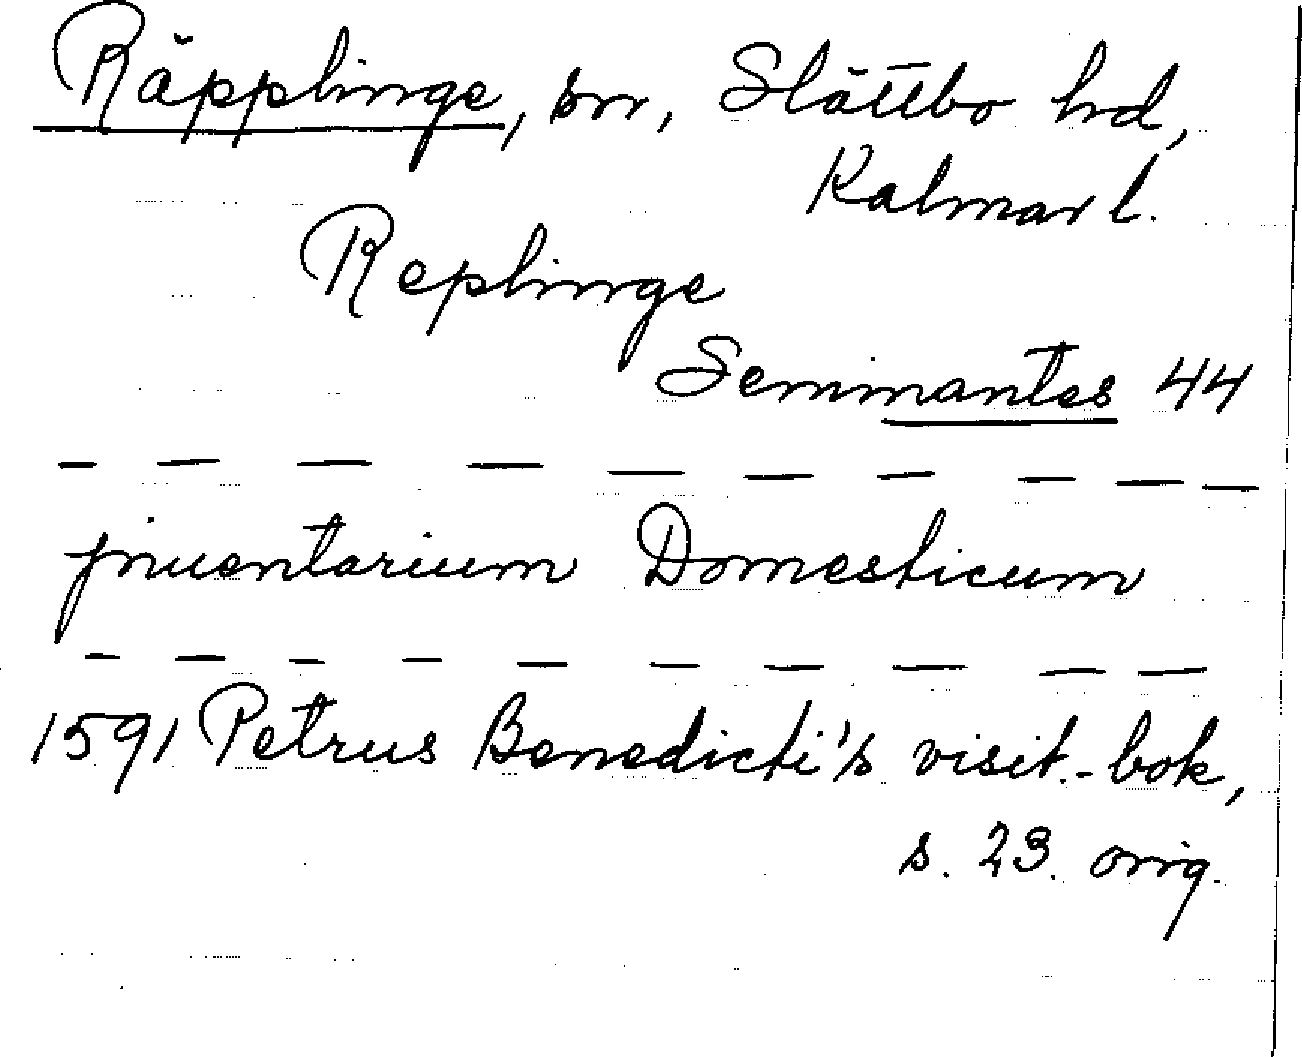 Räpplinge, sn, Slättbo hd,
Kalmar l.
Replinge
Seminantes 44
— — — — — — — — — —
jnuentarium Domesticum
— — — — — — — — — —
1591 Petrus Benedicti's visit.-bok,
s. 23. orig.